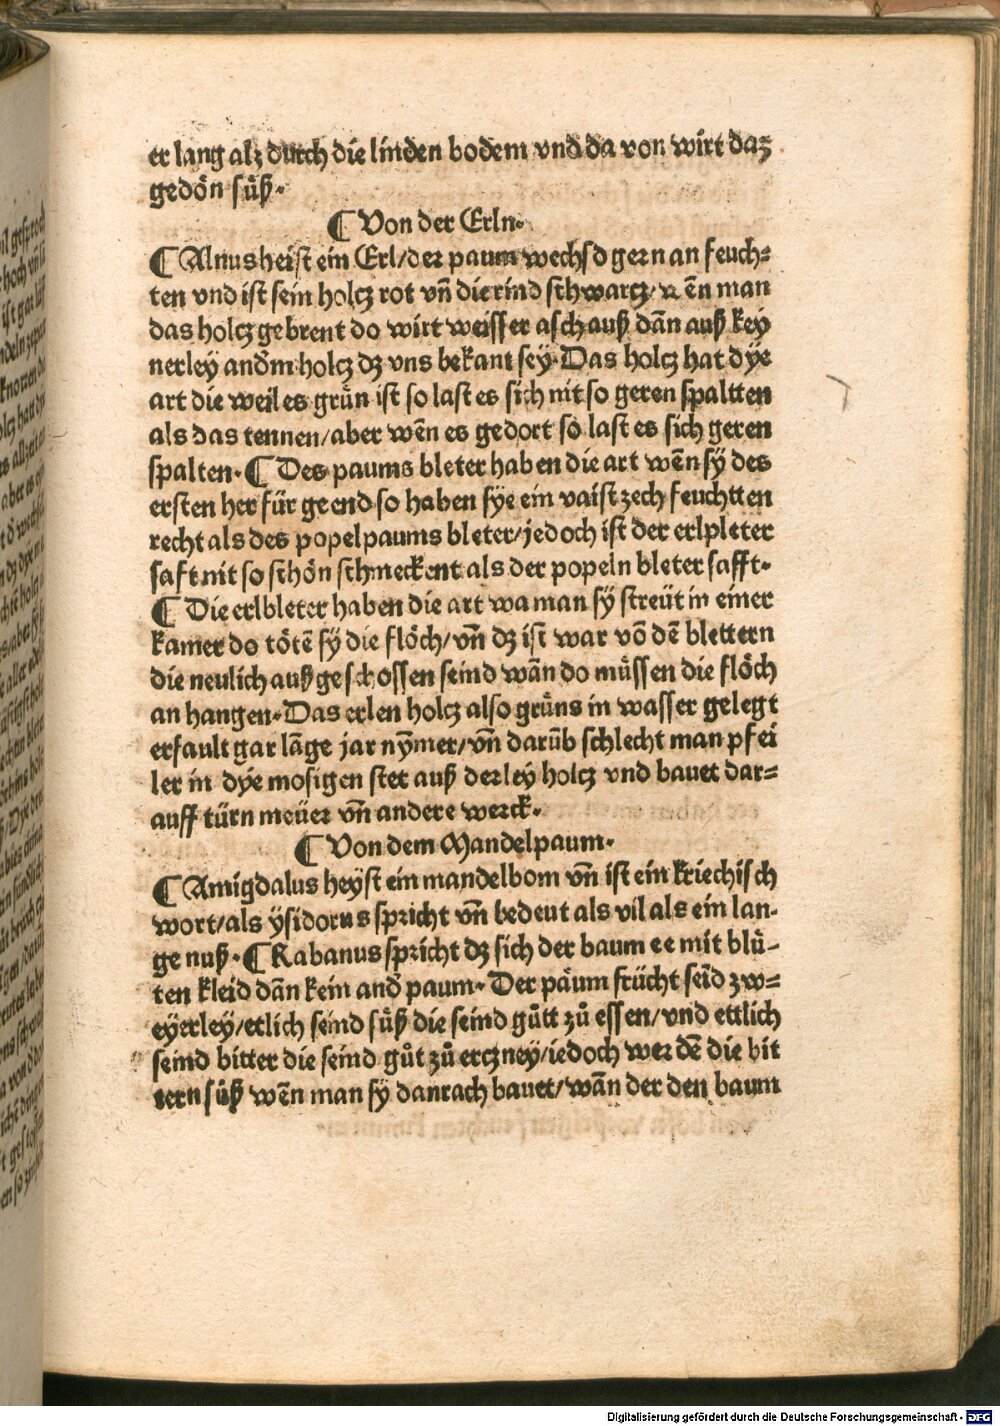 er lang alz durch die linden bodem vnd da von wirt daz
gedön süß.
¶ Von der Erln.
¶ Alnus heist ein Erl/der paum wechsd gern an feuch⸗
ten vnd ist sein holcz rot vn̄ die rind schwarcz/ wēn man
das holcz gebrent do wirt weisser asch auß dān auß key
nerley anđm holcz dz vns bekant sey. Das holcz hat dÿe
art die weil es grün ist so last es sich nit so geren spaltten
als das tennen/aber wēn es gedort so last es sich geren
spalten. ¶ Des paums bleter haben die art wēn sÿ des
ersten her für geend so haben sÿe ein vaist zech feuchtten
recht als des popelpaums bleter/jedoch ist der erlpleter
saft nit so schön schmeckent als der popeln bleter safft.
¶ Die erlbleter haben die art wa man sÿ streüt in einer
kamer do tötē sÿ die flöch/vn̄ dz ist war vō dē blettern
die neulich auß geschossen seind wān do müssen die flöch
an hangen. Das erlen holcz also grüns in wasser gelegt
erfault gar lāge jar nȳmer/vn̄ darüb schlecht man pfei
ler in dÿe mosigen stet auß derley holcz vnd bauet dar⸗
auff türn meüer vn̄ andere werck.
¶ Von dem Mandelpaum.
¶ Amigdalus heÿst ein mandelbom vn̄ ist ein kriechisch
wort/als ÿsidorus spricht vn̄ bedeut als vil als ein lan-
ge nuß. ¶ Rabanus spricht dz sich der baum ee mit blü-
ten kleid dān kein anđ paum. Der päum frücht seīd zw⸗
eÿerleÿ/etlich seind süß die seind gůtt zů essen/vnd ettlich
seind bitter die seind gůt zů erczneÿ/iedoch werdē die bit
tern süß wēn man sÿ danrach bauet/wān der den baum